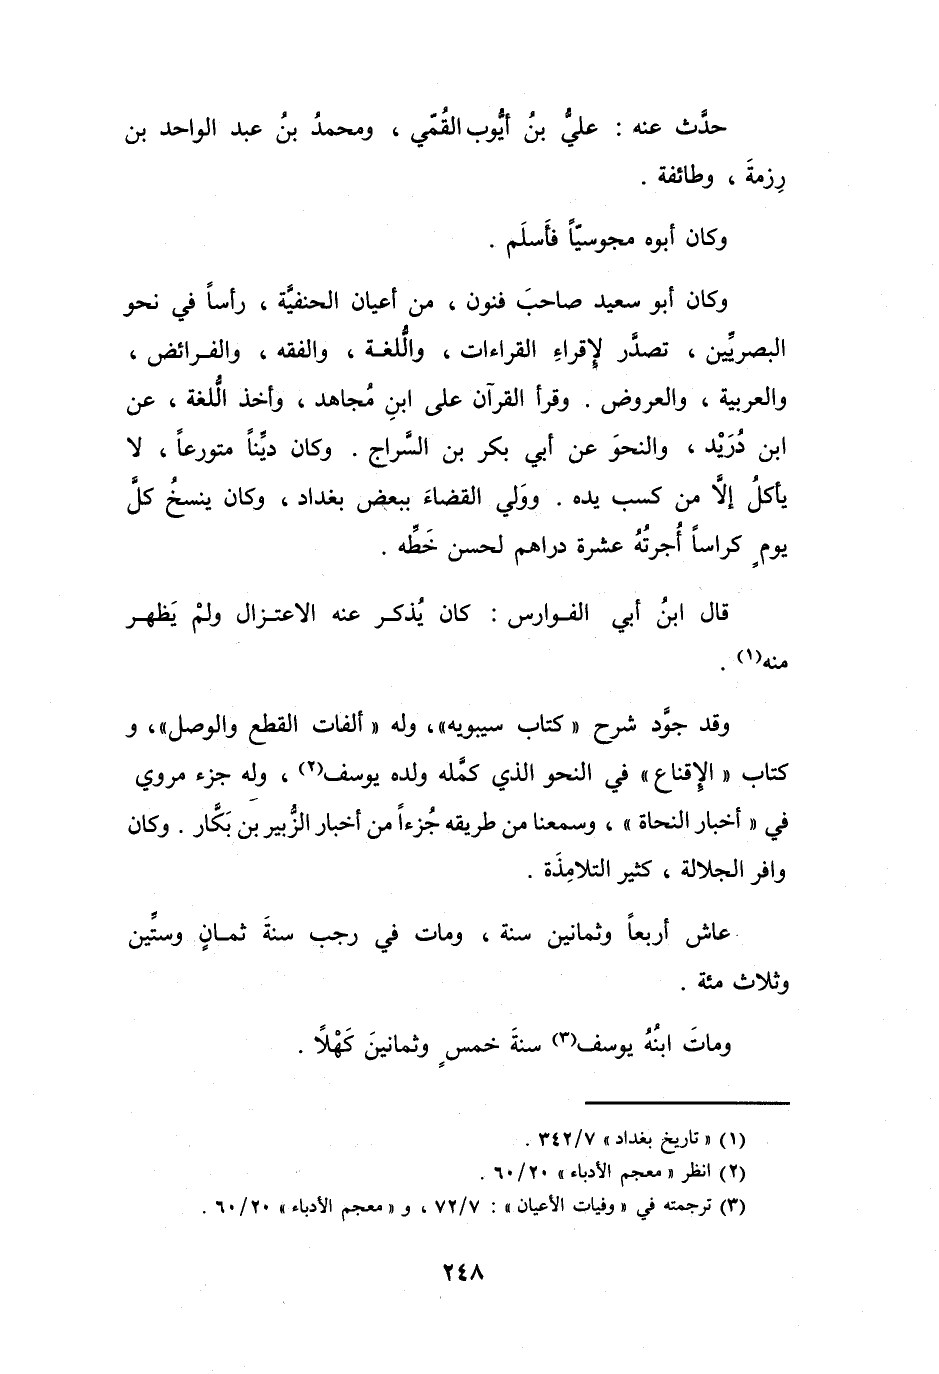 حدَّث عنه : عليُّ بنُ أيُّوب القُمّي ، ومحمدُ بنُ عبد الواحد بن
رِزمةَ ، وطائفة .
وكان أبوه مجوسيّاً فأَسلَم .
وكان أبو سعيد صاحبَ فنون ، من أعيان الحنفيَّة ، رأساً في نحو
البصريِّين ، تصدَّر لإِقراءِ القراءات ، واللُّغة ، والفقه ، والفرائض ،
والعربية ، والعروض . وقرأ القرآن على ابنِ مُجاهد ، وأخذ اللُّغة ، عن
ابن دُرَيْد ، والنحوَ عن أبي بكر بن السَّراج . وكان ديِّناً متورعاً ، لا
يأكلُ إلَّا من كسب يده . ووَلي القضاءَ ببعض بغداد ، وكان ينسخُ كلَّ
يومٍ كراساً أُجرتُهُ عشرة دراهم لحسن خَطِّه .
قال ابنُ أبي الفوارس : كان يُذكر عنه الاعتزال ولمْ يَظهر
منه(١) .
وقد جوَّد شرح « كتاب سيبويه»، وله « ألفات القطع والوصل»، و
كتاب « الإِقناع» في النحو الذي كمَّله ولده يوسف(٢) ، وله جزء مروي
في « أخبار النحاة » ، وسمعنا من طريقه جُزءاً من أخبار الزُّبير بن بَكَّار . وكان
وافر الجلالة ، كثير التلامِذَة .
عاش أربعاً وثمانين سنة ، ومات في رجب سنةَ ثمانٍ وستِّين
وثلاث مئة .
وماتَ ابنُهُ يوسف(٣) سنةَ خمسٍ وثمانينَ كَهْلًا .
(١) « تاريخ بغداد» ٣٤٢/٧ .
(٢) انظر « معجم الأدباء » ٦٠/٢٠ .
(٣) ترجمته في « وفيات الأعيان» : ٧٢/٧ ، و « معجم الأدباء » ٦٠/٢٠ .
٢٤٨